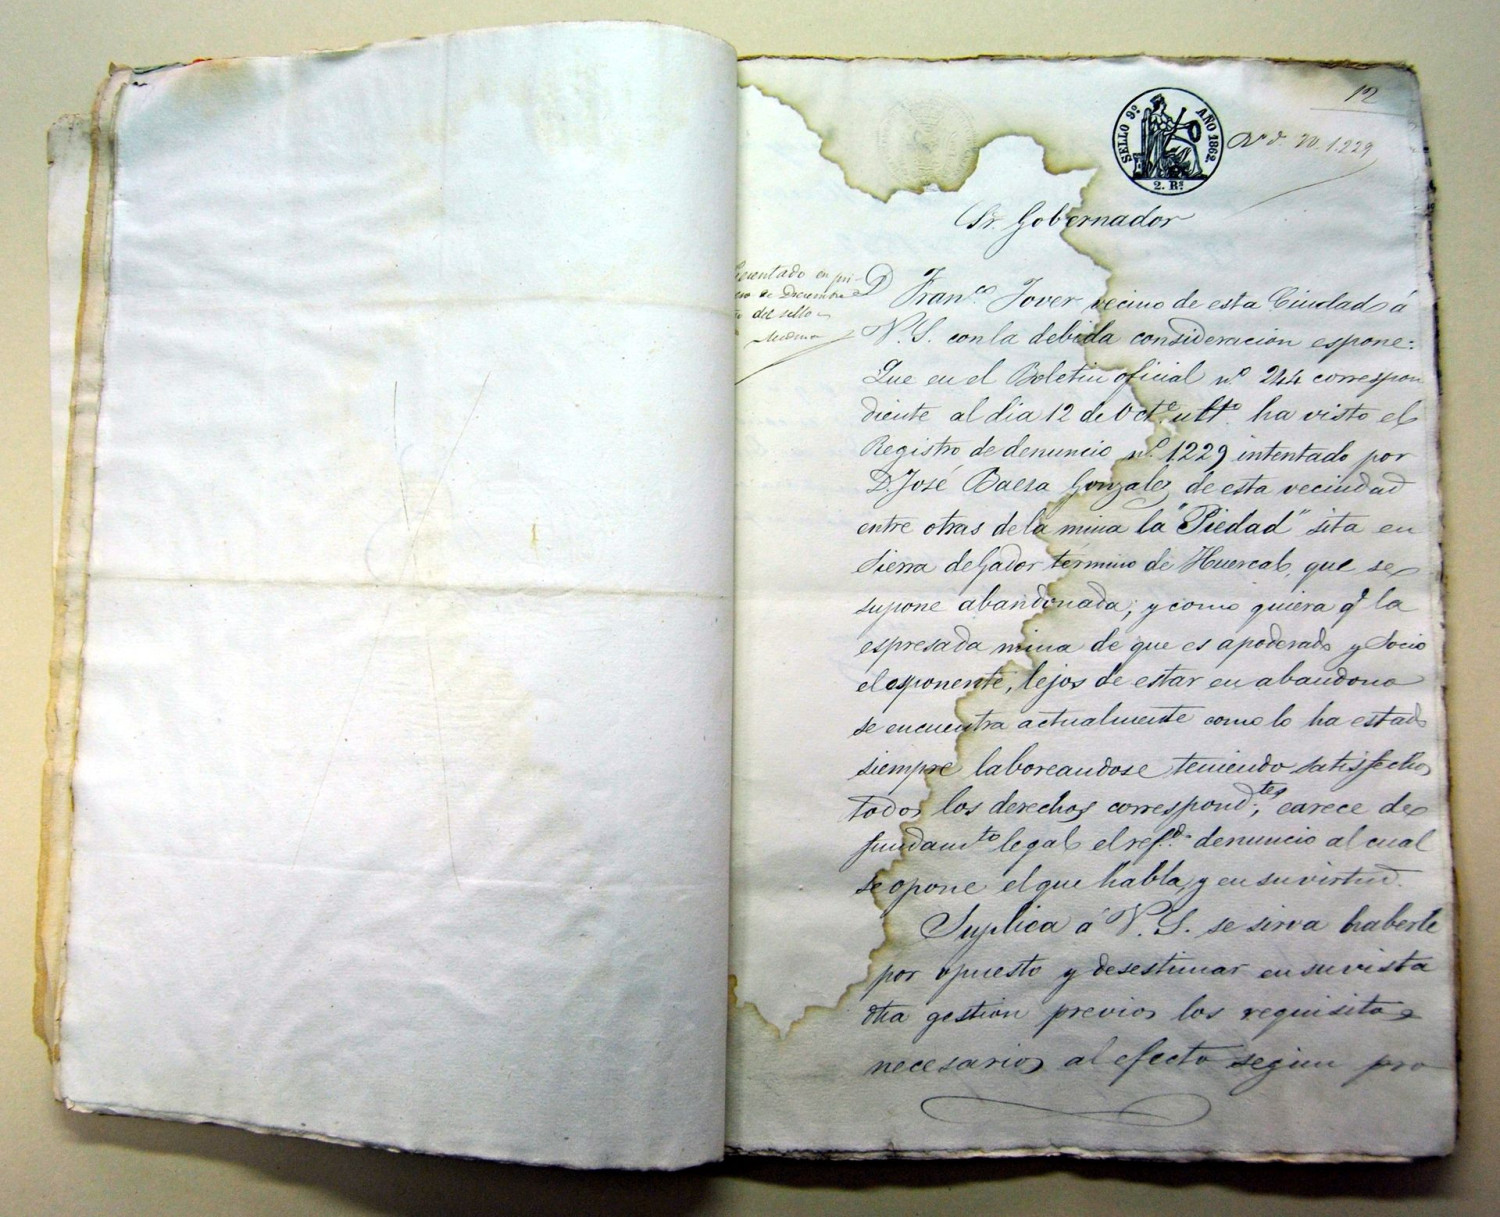 12
SELLO 9º AÑO 1862.
2. Rs
1.229
Sr. Gobernador
en pri-
de Diciembre
del sello
D Franco. Jover vecino de esta Ciudad á
V. S. con la debida consideración espone:
Que en el Boletin oficial nº. 244 correspon
diente al dia 12 de Octe. ultº. ha visto el
Registro de denuncio nº. 1229 intentado por
D. José Baesa Gonzalez de esta vecindad
entre otras de la mina la "Piedad" sita en
Sierra de Gador termino de Huercal, que se
supone abandonada; y como quiera q.e la
espresada mina de que es apoderado y Socio
el esponente, lejos de estar en abandono
se encuentra actualmente como lo ha estado
siempre laboreandose teniendo satisfechos
todos los derechos correspond.tes, carece de
fundamto legal el refd.o denuncio al cual
se opone el que habla, y en su virtud.
Suplica á V. S. se sirva haberle
por opuesto y desestimar en su vista
dha gestion previos los requisitos
necesarios al efecto segun pro